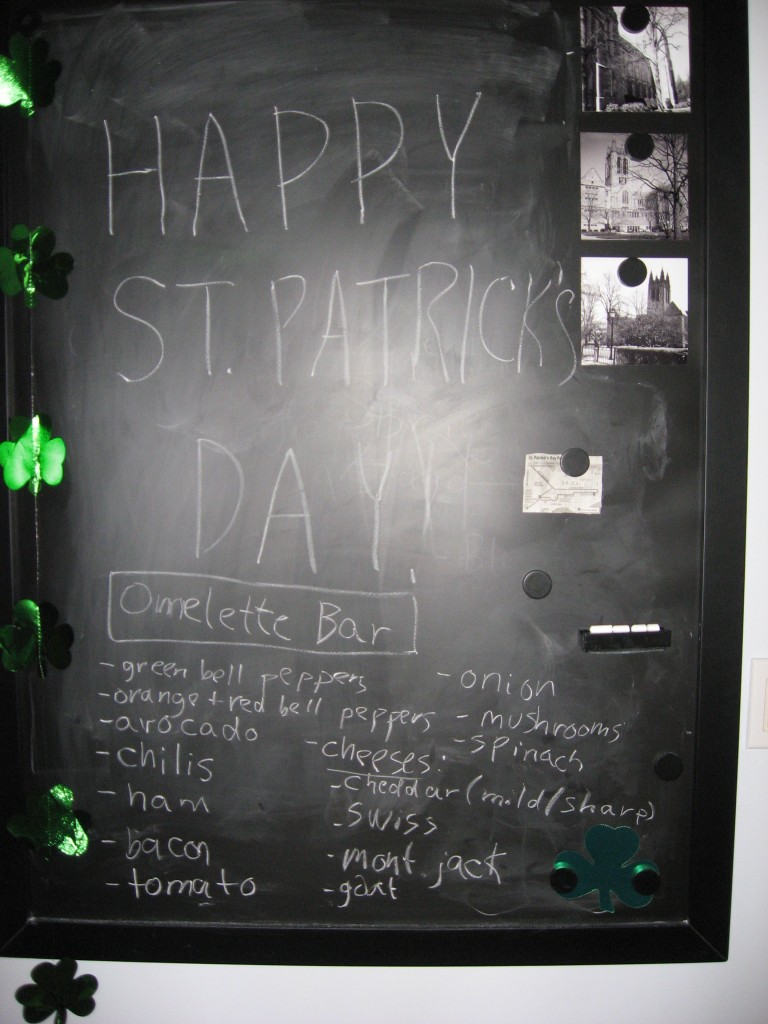 HAPPY
ST. PATRICK'S
DAY!
Omelette Bar
- green bell peppers
- orange + red bell peppers
- avocado
- chilis
- ham
- bacon
- tomato
- onion
- mushrooms
- spinach
- cheeses:
- cheddar (mild/sharp)
- swiss
- mont jack
- goat